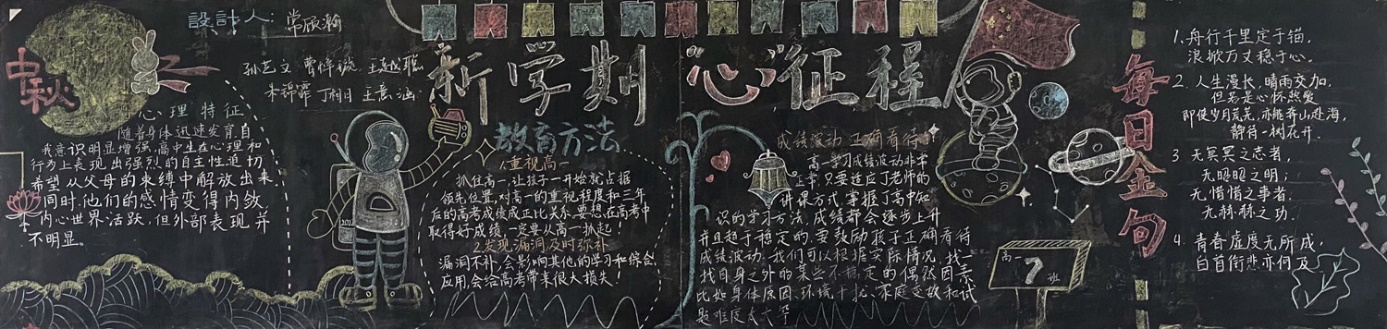 設計人：常欣瀚
孙艺文 曹惮璇 王越聪
朱锦霏 丁相日 王熹涵
中秋
新学期“心”征程
心理特征
随着身体迅速发育,自
我意识明显增强,高中生在心理和
行为上表现出强烈的自主性迫切
希望从父母的束缚中解放出来
同时,他们的感情变得内敛,
内心世界活跃,但外部表现并
不明显.
教育方法
1.重视高一
抓住高一,让孩子一开始就占据
领先位置,对高一的重视程度和三年
后的高考成绩成正比关系,要想在高考中
取得好成绩,一定要从高一抓起!
2.发现漏洞及时弥补
漏洞不补,会影响其他的学习和综合
应用,会给高考带来很大损失!
成绩波动 正确看待
高一学习成绩波动非常
正常,只要适应了老师的
讲课方式,掌握了高中知
识的学习方法,成绩都会逐步上升
并且趋于稳定的,要鼓励孩子正确看待
成绩波动,我们可以根据实际情况,找一
找自身之外的某些不稳定的偶然因素
比如身体原因、环境干扰、家庭变故和试
题难度太大等
高一7班
每日金句
1.舟行千里定于锚,
浪掀万丈稳于心.
2.人生漫长,晴雨交加,
但若是心怀热爱
即使岁月荒芜,亦能奔山赴海,
静待一树花开.
3 无冥冥之志者,
无昭昭之明;
无惛惛之事者,
无赫赫之功.
4.青春虚度无所成,
白首衔悲亦何及